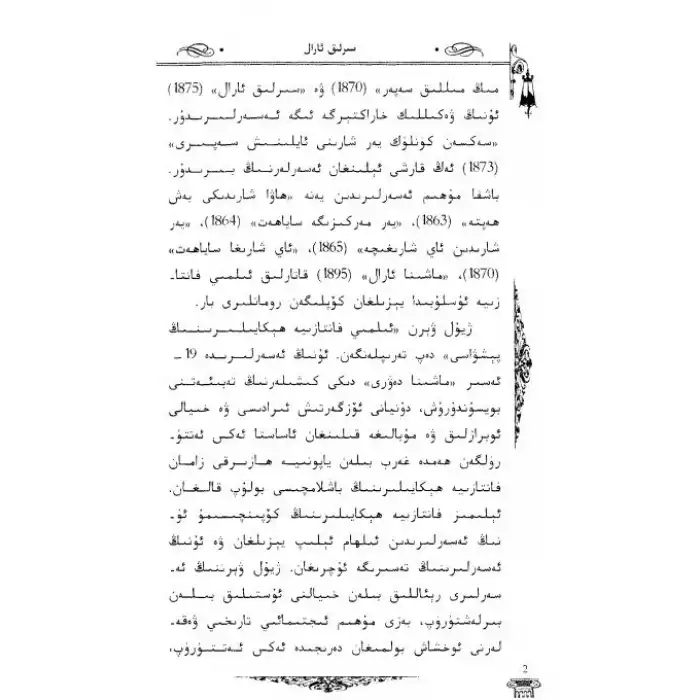 سىرلىق ئارال
مىڭ مىللىق سەپەر» (1870) ۋە «سىرلىق ئارال» (1875)
ئۇنىڭ ۋەكىللىك خاراكتېرگە ئىگە ئەسەرلىرىدۇر.
«سەكسەن كۈنلۈك يەر شارىنى ئايلىنىش سەپىرى»
(1873) ئەڭ قارشى ئېلىنغان ئەسەرلەرنىڭ بىرىدۇر.
باشقا مۇھىم ئەسەرلىرىدىن يەنە «ھاۋا شارىدىكى بەش
ھەپتە» (1863)، «يەر مەركىزىگە ساياھەت» (1864)، «يەر
شارىدىن ئاي شارىغىچە» (1865)، «ئاي شارىغا ساياھەت»
(1870)، «ماشىنا ئارال» (1895) قاتارلىق ئىلمىي فانتا-
زىيە ئۇسلۇبىدا يېزىلغان كۆپلىگەن رومانلىرى بار.
ژيۇل ۋېرن «ئىلمىي فانتازىيە ھېكايىلىرىنىڭ
پېشۋاسى» دەپ تەرىپلەنگەن. ئۇنىڭ ئەسەرلىرىدە 19 -
ئەسىر «ماشىنا دەۋرى» دىكى كىشىلەرنىڭ تەبىئەتنى
بويسۇندۇرۇش، دۇنيانى ئۆزگەرتىش ئىرادىسى ۋە خىيالى
ئوبرازلىق ۋە مۇبالىغە قىلىنغان ئاساستا ئەكس ئەتتۈ-
رۈلگەن ھەمدە غەرب بىلەن ياپونىيە ھازىرقى زامان
فانتازىيە ھېكايىلىرىنىڭ باشلامچىسى بولۇپ قالغان.
ئېلىمىز فانتازىيە ھېكايىلىرىنىڭ كۆپىنچىسىمۇ ئۇ-
نىڭ ئەسەرلىرىدىن ئىلھام ئېلىپ يېزىلغان ۋە ئۇنىڭ
ئەسەرلىرىنىڭ تەسىرىگە ئۇچرىغان. ژيۇل ۋېرننىڭ ئە-
سەرلىرى رېئاللىق بىلەن خىيالنى ئۇستىلىق بىلەن
بىرلەشتۈرۈپ، بەزى مۇھىم ئىجتىمائىي تارىخىي ۋەقە-
لەرنى ئوخشاش بولمىغان دەرىجىدە ئەكس ئەتتۈرۈپ،
2